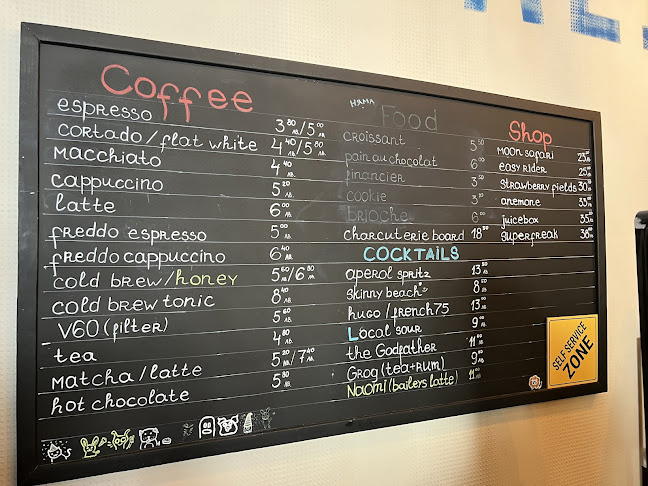 Coffee
espresso 3 80 лв./5 00 лв.
cortado/flat white 4 40 лв./5 80 лв.
Macchiato 4 40 лв.
cappuccino 5 20 лв.
latte 6 00 лв.
freddo espresso 5 00 лв.
freddo cappuccino 6 40 лв.
cold brew/honey 5 60 лв./6 80 лв.
cold brew tonic 8 40 лв.
V60 (filter) 5 60 лв.
tea 4 80 лв.
Matcha/latte 5 20 лв./7 40 лв.
hot chocolate 5 80 лв.
НЯМА
Food
croissant 5 50
pain au chocolat 6 00
financier 3 50
cookie
brioche 6 00
charcuterie board 18 90
COCKTAILS
aperol spritz 13 50 лв.
skinny beach 8 50 лв.
hugo/french75 13 00 лв.
Local sour 9 00 лв.
the Godfather 11 00 лв.
Grog (tea+rum) 9 80 лв.
Naomi (bailers latte) 11 00 лв.
Shop
moon safari 25
easy rider 25
strawberry fields 30
anemone 33
juicebox 35
superfreak 38
SELF SERVICE
ZONE